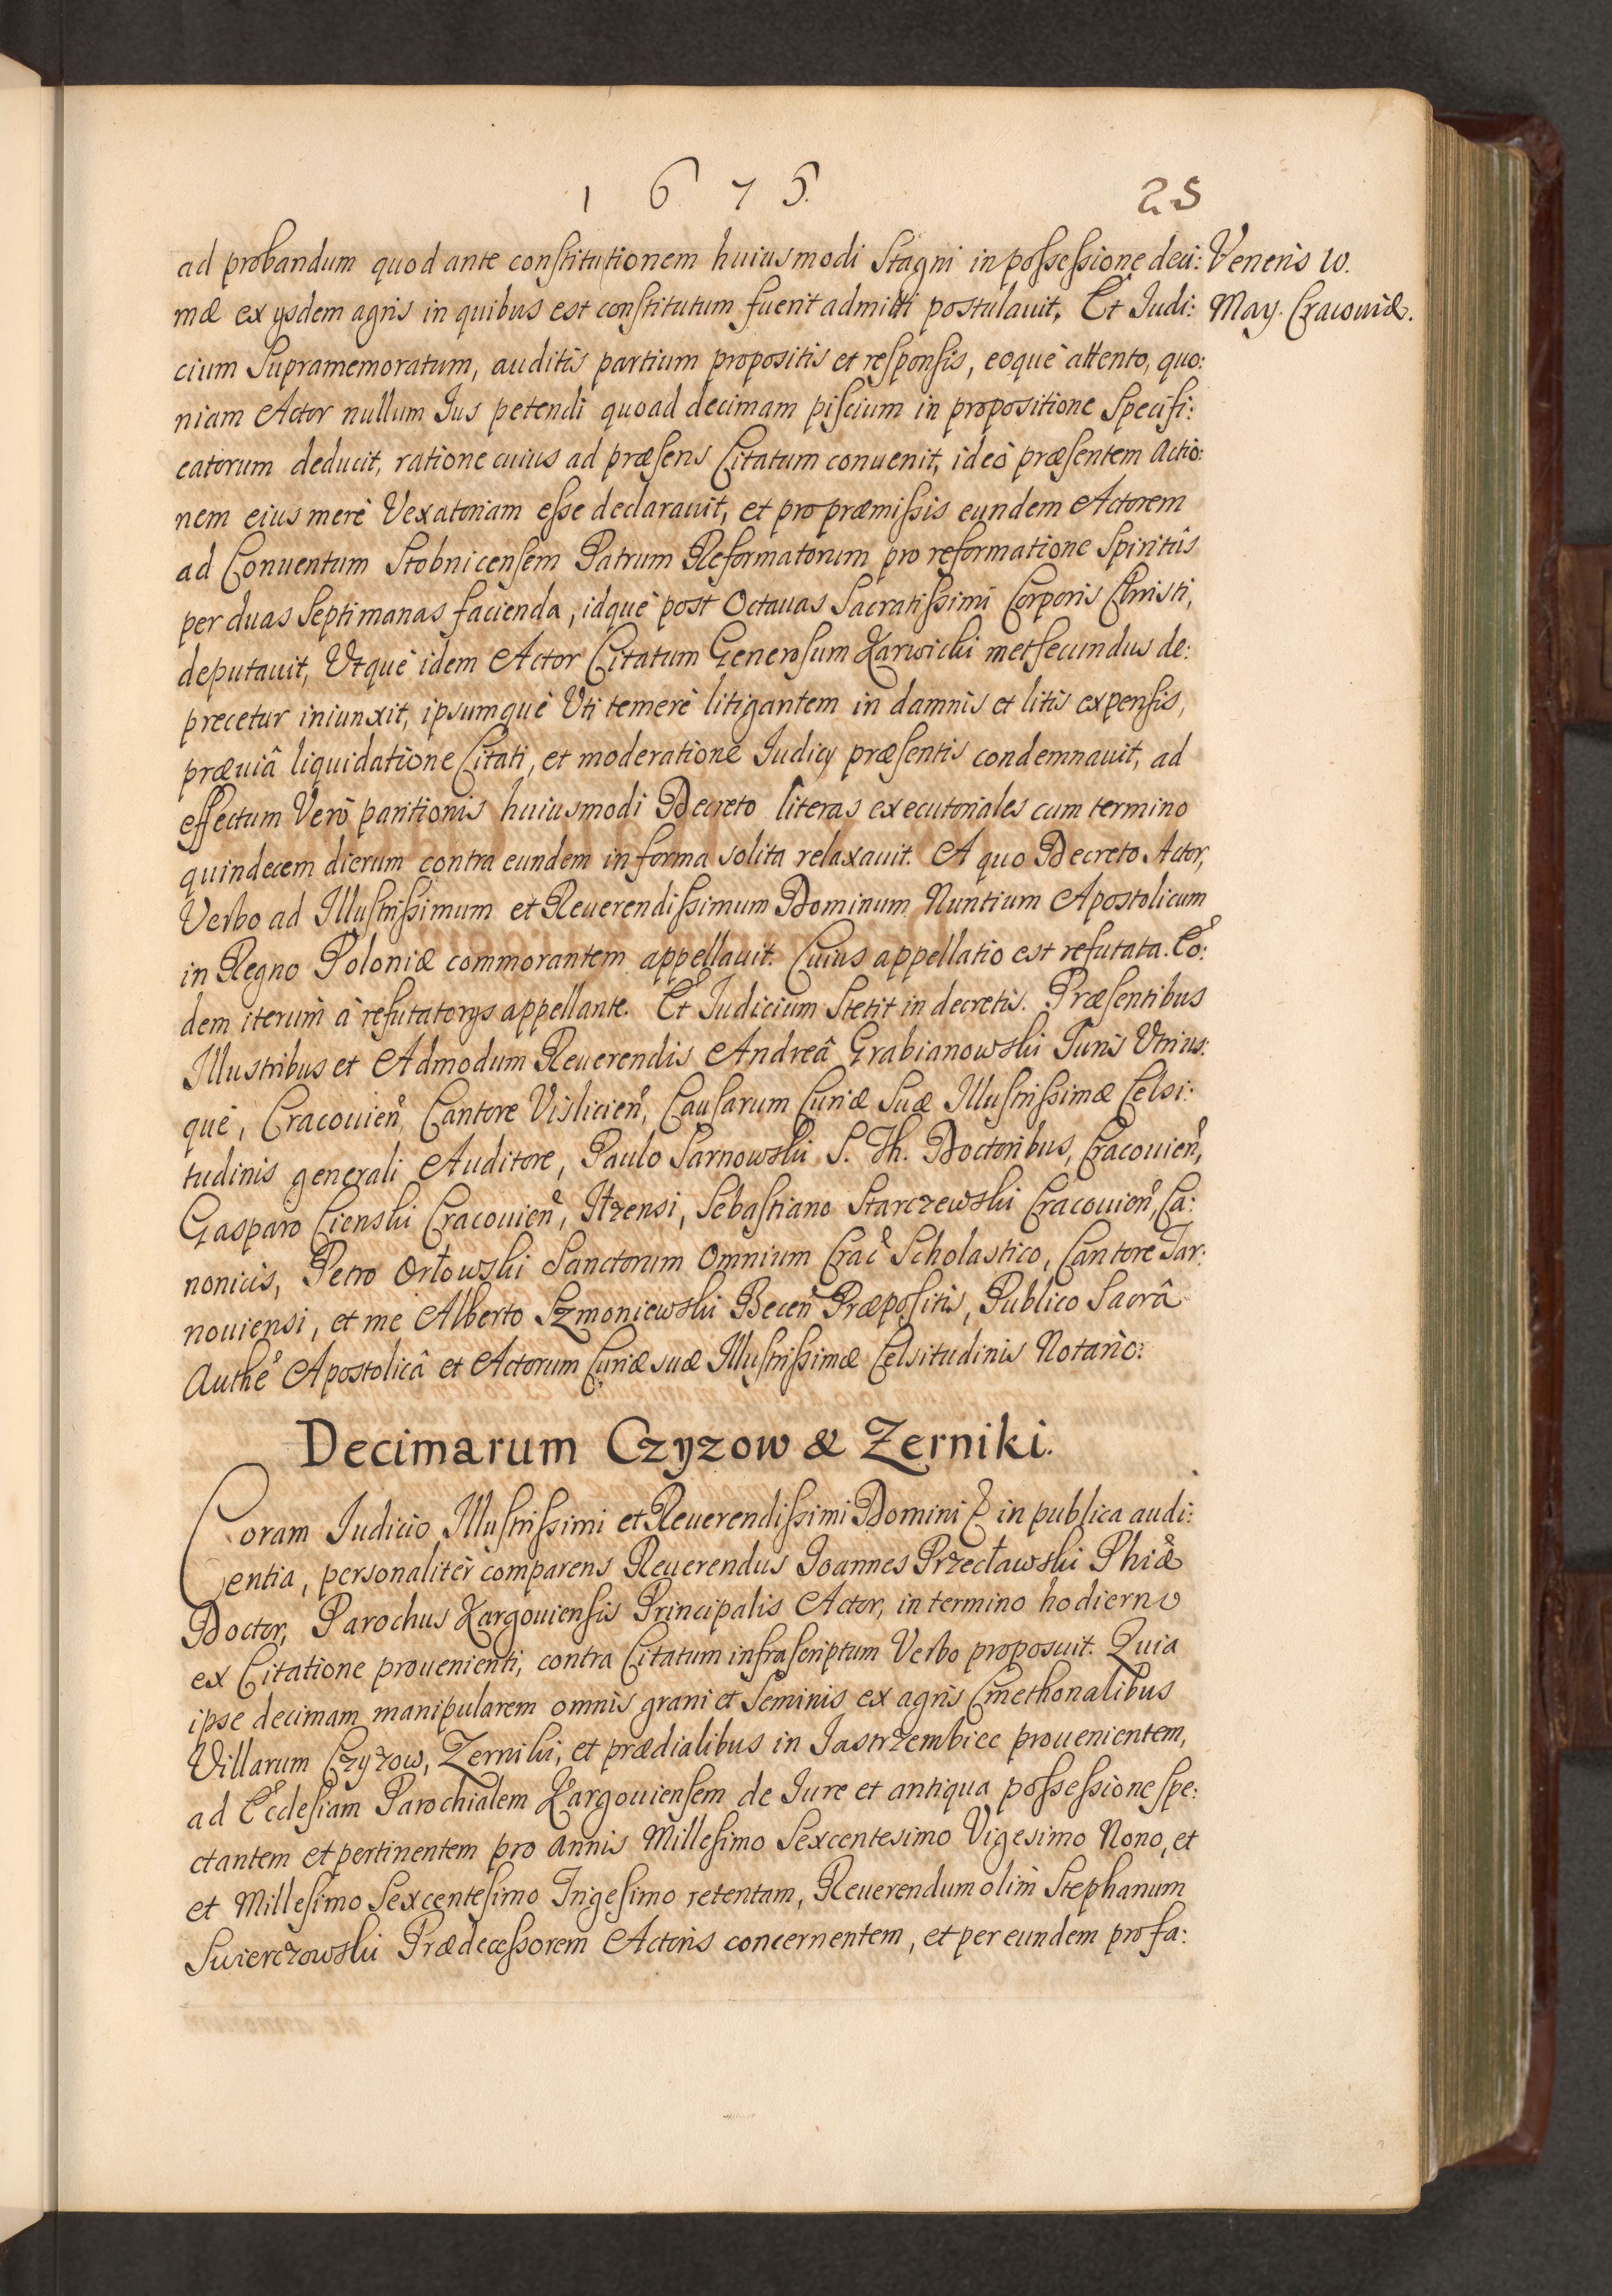 1675. 25
Veneris 10.
May. Cracouiæ.
ad probandum quod ante constitutionem huiusmodi Stagni in possessione deci:
mæ ex ysdem agris in quibus est constitutum fuerit admitti postulauit, Et Judi:
cium Supramemoratum, auditis partium propositis et responsis, eoque attento, quo:
niam Actor nullum Jus petendi quoad decimam piscium in propositione Specifi:
catorum deducit, ratione cuius ad præsens Citatum conuenit, ideo præsentem Actio:
nem eius mere Vexatoriam esse declarauit, et pro præmissis eundem Actorem
ad Conuentum Stobnicensem Patrum Reformatorum pro reformatione Spiritûs
per duas Septimanas facienda, idque post Octauas Sacratissimi Corporis Christi,
deputauit, Utque idem Actor Citatum Generosum Karwicki metsecundus de:
precetur iniunxit, ipsumque Uti temere litigantem in damnis et litis expensis,
præuiâ liquidatione Citati, et moderatione Judicy præsentis condemnauit, ad
effectum Vero paritionis huiusmodi Decreto literas executoriales cum termino
quindecem dierum contra eundem in forma solita relaxauit. A quo Decreto Actor,
Verbo ad Illustrissimum et Reuerendissimum Dominum Nuntium Apostolicum
in Regno Poloniæ commorantem appellauit. Cuius appellatio est refutata. Eo:
dem iterum à refutatorys appellante. Et Judicium Stetit in decretis. Præsentibus
Illustribus et Admodum Reuerendis Andreâ Grabianowski Juris Utrius:
que, Cracouien Cantore Vislicien, Causarum Curiæ Suæ Illustrissimæ Celsi:
tudinis generali Auditore, Paulo Sarnowski S. Th. Doctoribus, Cracouien,
Gasparo Cienski Cracouien, Itzensi, Sebastiano Starczewski Cracouien, Ca:
nonicis, Petro Orłowski Sanctorum Omnium Crac Scholastico, Cantore Tar:
nouiensi, et me Alberto Szmoniewski Becen Præpositis, Publico Sacrâ
Authe Apostolicâ et Actorum Curiæ suæ Illustrissimæ Celsitudinis Notario:
Decimarum Czyzow & Zerniki.
Coram Judicio Illustrissimi et Reuerendissimi Domini & in publica audi:
entia, personaliter comparens Reuerendus Joannes Przecławski Phiæ
Doctor, Parochus Kargouiensis Principalis Actor, in termino hodierno
ex Citatione prouenienti, contra Citatum infrascriptum Verbo proposuit. Quia
ipse decimam manipularem omnis grani et Seminis ex agris Cmethonalibus
Villarum Czyzow, Zerniki, et prædialibus in Jastrzembiec prouenientem,
ad Ecclesiam Parochialem Kargouiensem de Jure et antiqua possessione spe:
ctantem et pertinentem pro annis Millesimo Sexcentesimo Vigesimo Nono, et
et Millesimo Sexcentesimo Trigesimo retentam, Reuerendum olim Stephanum
Swierczowski Prædecessorem Actoris concernentem, et per eundem pro fa: